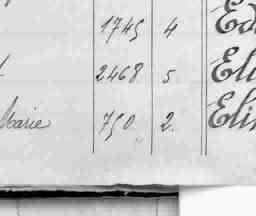 1745 4 Ed
2468 5 Eli
Marie 750 2. Eli